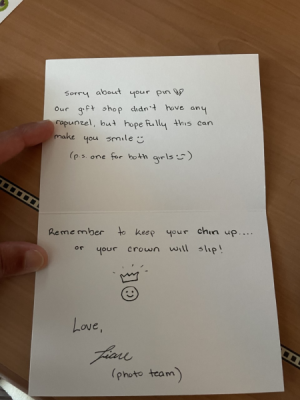 Sorry about your pin
Our gift shop didn't have any
rapunzel, but hopefully this can
make you smile
(p.s. one for both girls)
Remember to keep your chin up....
or your crown will slip!
Love,
(photo team)